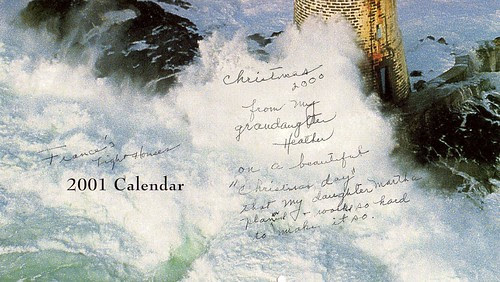 Christmas
2000
from my
grandaughter
Heather
on a beautiful
"Christmas day"
that my daughter Martha
planed & works so hard
to make it so.
France's
Light Houses
2001 Calendar